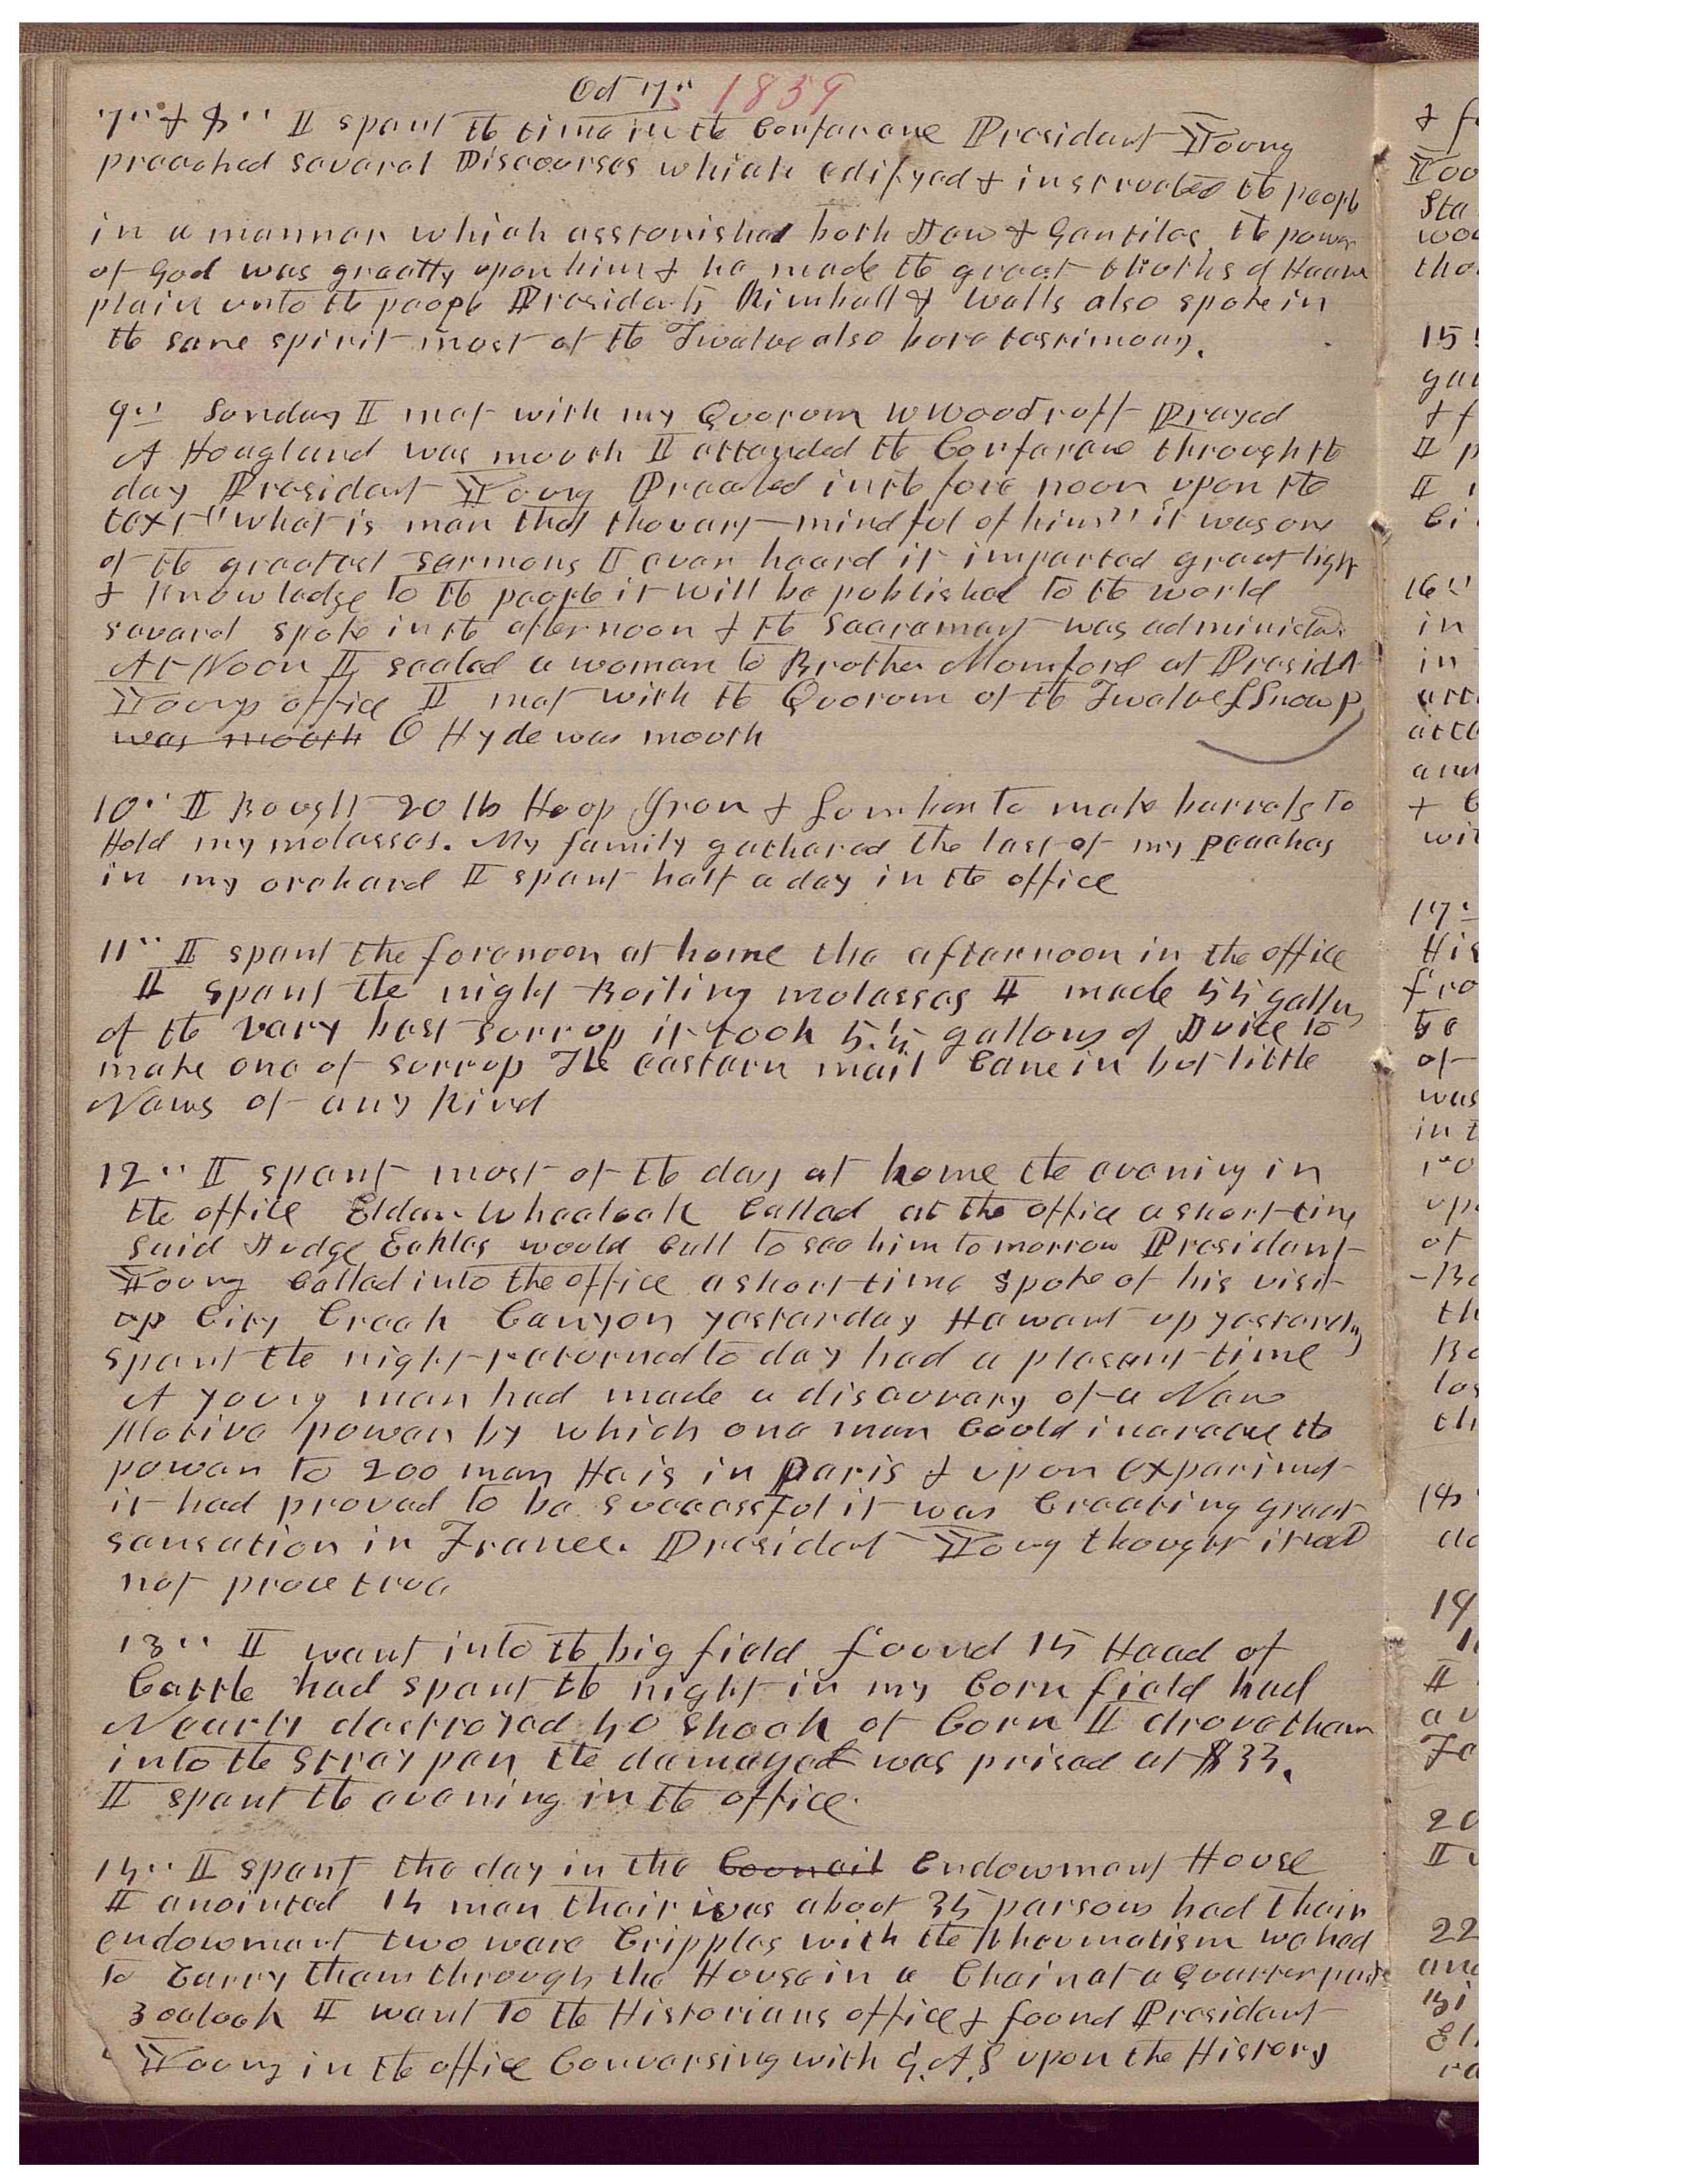 Oct 7" 1859
7" & 8" I spent the time in the Conferance President Young
preached several Discourses which edifyed & instructed the people
in a manner which asstonished both Jew & Gentiles the power
of God was greatly upon him & he made the great truths of Heaven
plain unto the people Presidents Kimball & Wells also spoke in
the same spirit most of the Twelve also bore testimony.
9" Sunday I met with my Quorum W Woodruff Prayed
A Hoagland was mouth I attended the Conferance through the
day President Young Preached in the fore noon upon the
text "what is man that thou art mindful of him" it was one
of the greatest sermons I ever heard it imparted great light
& knowledge to the people it will be published to the world
several spoke in the afternoon & the Sacrament was administered
At Noon I sealed a woman to Brother Momford at Presidt
Youngs office I met with the Quorum of the Twelve L Snow P
was mouth O Hyde was mouth
10" I Bought 20 lb Hoop Iron & Lumber to make barrels to
Hold my molasses. My family gathered the last of my peaches
in my orchard I spent half a day in the office
11" I spent the forenoon at home the afternoon in the office
I spent the night Boiling molasses I made 55 gallns
of the very best surrup it took 5.5 gallons of Juice to
make one of surrup The eastern mail Came in but little
News of any kind
12" I spent most of the day at home the evening in
the office Elder Wheelock Called at the office a short time
said Judge Eckles would Call to see him tomorrow President
Young Called into the office a short time spoke of his visit
up City Creek Canyon yesterday He went up yesterday
spent the night returned to day had a plesant time
A young man had made a discovery of a New
Motive power by which one man Could increase the
power to 200 men He is in Paris & upon experimet
it had proved to be successful it was Creating great
sensation in France. President Young thought it wd
not prove true
13" I went into the big field found 15 Head of
Cattle had spent the night in my Corn field had
Nearly destroyed 40 shock of Corn I drove them
into the stray pen the damaged was prised at $33.
I spent the evening in the office.
14" I spent the day in the Council Endowment House
I anointed 14 men their was about 35 persons had their
endowment two were Cripples with the Rheumatism we had
to Carry them through the House in a Chair at a quarter past
3 oclock I went to the Historians office & found President
Young in the office Conversing with G. A. S upon the History